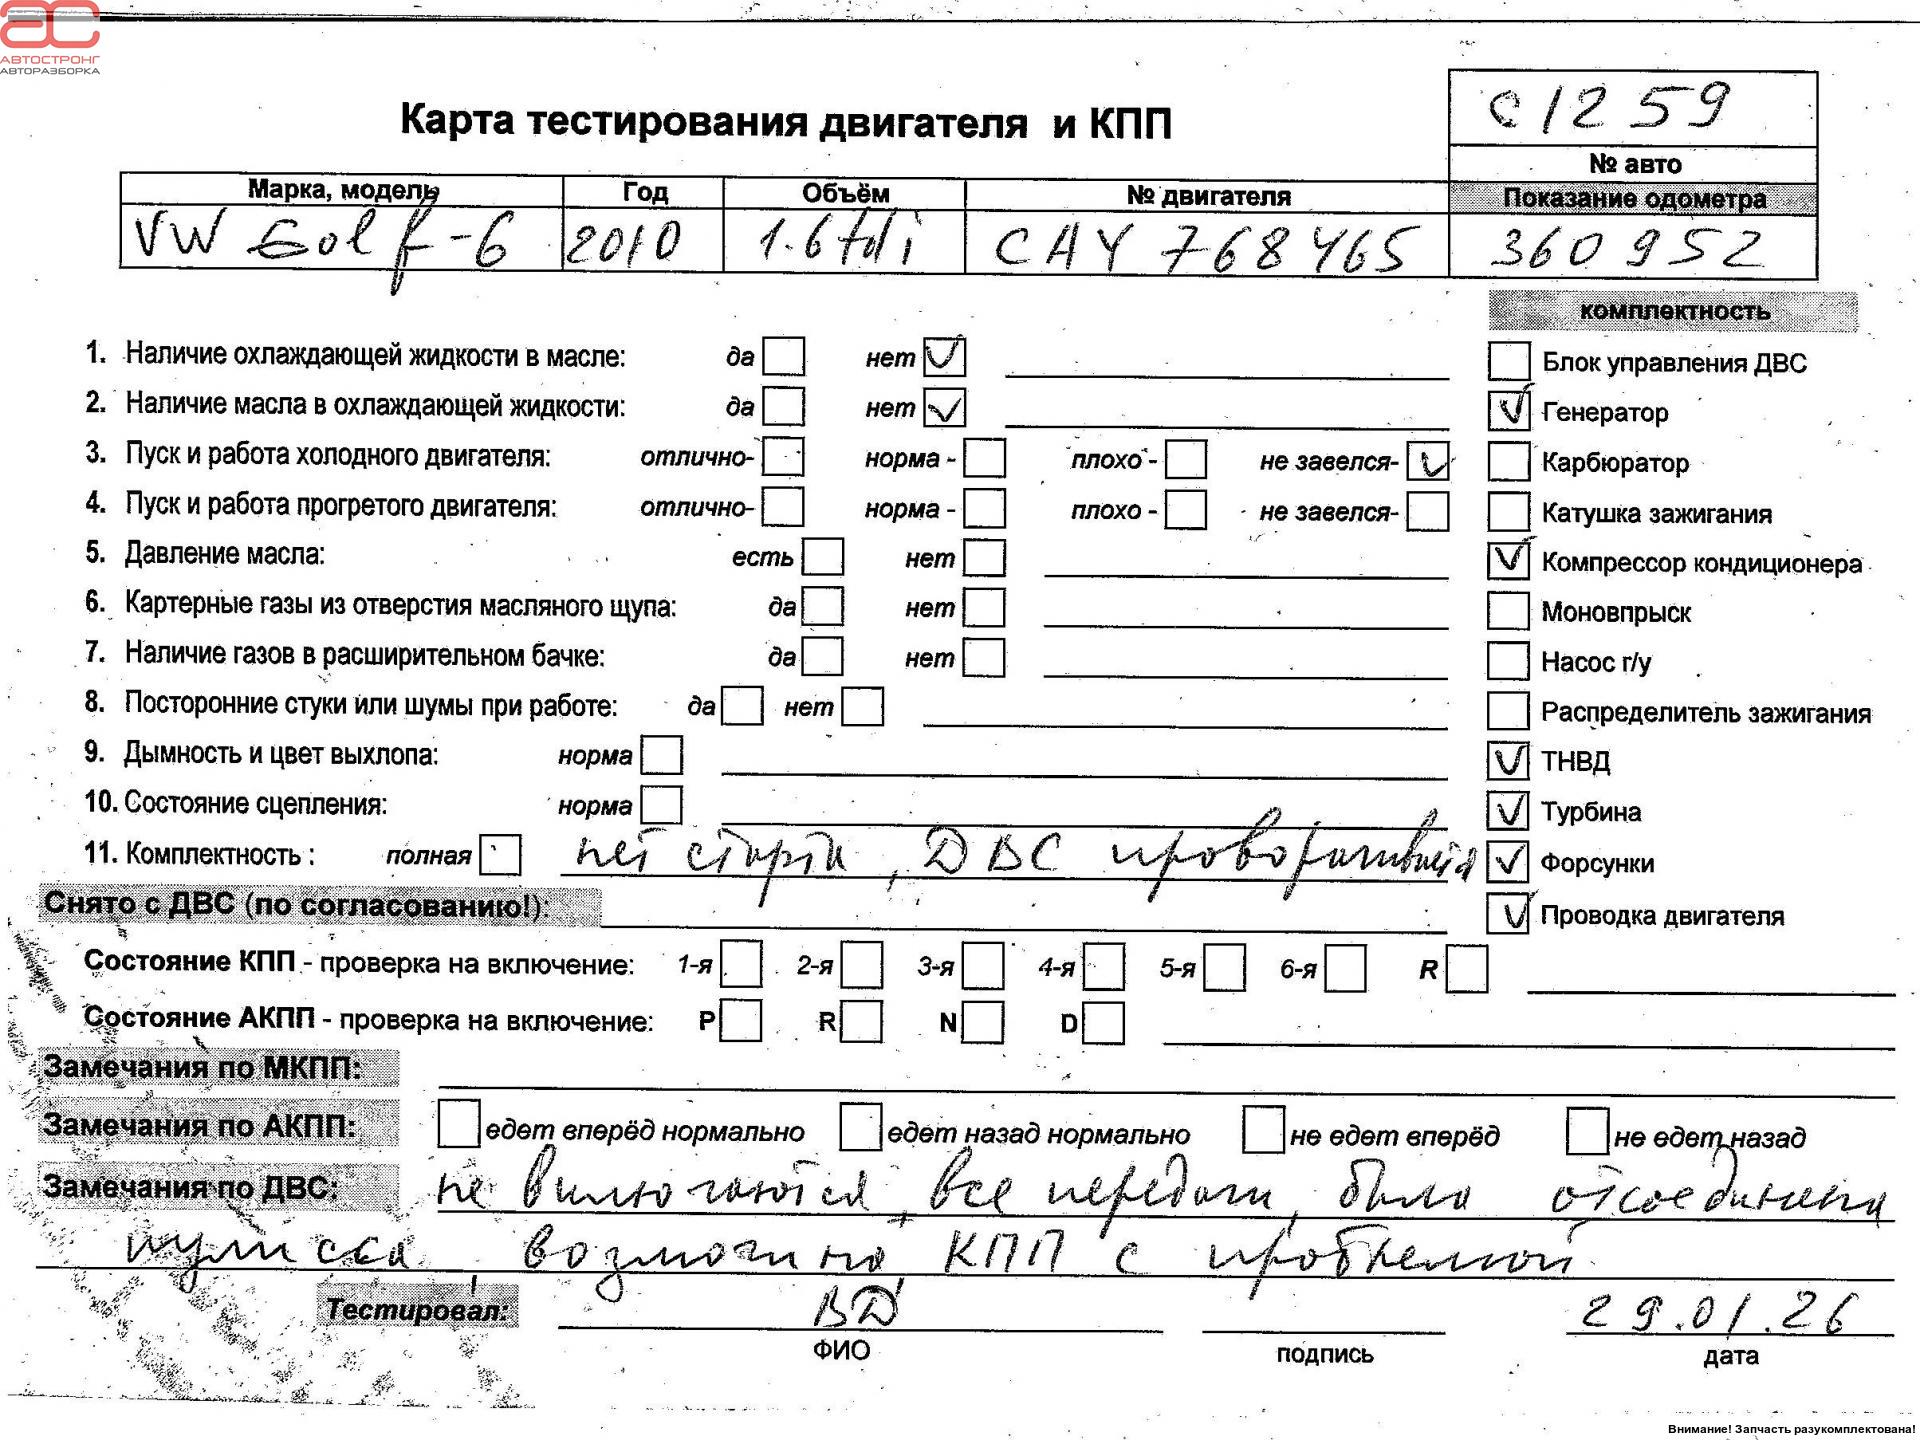 АВТОСТРОНГ
АВТОРАЗБОРКА
Карта тестирования двигателя и КПП
С1259
№ авто
Марка, модель Год Объём № двигателя Показание одометра
VW Golf-6 2010 1.6 tdi CAY 768465 360952
комплектность
1. Наличие охлаждающей жидкости в масле: да нет
Блок управления ДВС
2. Наличие масла в охлаждающей жидкости: да нет
Генератор
3. Пуск и работа холодного двигателя: отлично- норма - плохо - не завелся-
Карбюратор
4. Пуск и работа прогретого двигателя: отлично- норма - плохо - не завелся-
Катушка зажигания
5. Давление масла: есть нет
Компрессор кондиционера
6. Картерные газы из отверстия масляного щупа: да нет
Моновпрыск
7. Наличие газов в расширительном бачке: да нет
Насос г/у
8. Посторонние стуки или шумы при работе: да нет
Распределитель зажигания
9. Дымность и цвет выхлопа: норма
ТНВД
10. Состояние сцепления: норма
Турбина
11. Комплектность : полная нет старта, ДВС проворачивается
Форсунки
Снято с ДВС (по согласованию!):
Проводка двигателя
Состояние КПП - проверка на включение: 1-я 2-я 3-я 4-я 5-я 6-я R
Состояние АКПП - проверка на включение: P R N D
Замечания по МКПП:
Замечания по АКПП: едет вперёд нормально едет назад нормально не едет вперёд не едет назад
Замечания по ДВС: не вилючаются все передачи, была отсоединена
кулиска, возможно КПП с проблемой
Тестировал: ВД 29.01.26
ФИО подпись дата
Внимание! Запчасть разукомплектована!